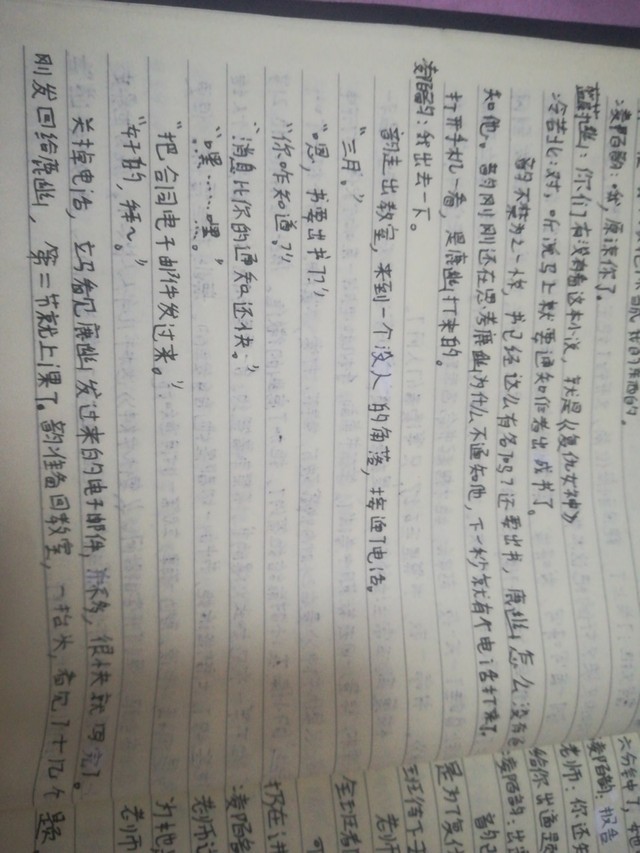 我的东西的。
凌陌韵：哦，原谅你了。
你们有没有看这本小说，就是《复仇女神》
对，听说马上就要通知作者出成书了。
韵不禁为之一惊，书已经这么有名了吗？还要出书，怎么没有通
知他。韵刚刚还在思考为什么不通知他，下一秒就有个电话打来了。
打开手机一看，是打来的。
凌陌韵：我出去一下。
韵走出教室，来到一个没人的角落，接通了电话。
“三月。”
“嗯，书要出书了？”
“你咋知道？”
“消息比你的通知还快。”
“嘿……嘿……。”
“把合同电子邮件发过来。”
“好的，～”
关掉电话，立马看见发过来的电子邮件，很快就写完了。
刚发回给，第二节就上课了。韵准备回教室，一抬头，看见了十几个
六分钟了，
凌陌韵：报告
老师：你还知
给你出道题
凌陌韵：出
韵
是为了复仇
班传下
老师
全班看
扔在讲
凌陌韵
老师
为
老师
题